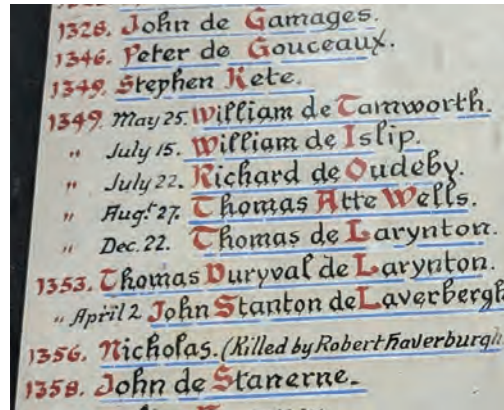 1328. John de Gamages.
1346. Peter de Gouceaux.
1349. Stephen Kete.
1349. May 25. William de Tamworth.
" July 15. William de Islip.
" July 22. Richard de Oudeby.
" Augt. 27. Thomas Atte Wells.
" Dec. 22. Thomas de Larynton.
1353. Thomas Duryval de Larynton.
" April 2 John Stanton de Laverbergh
1356. Nicholas. (Killed by Robert Haverburgh.
1358. John de Stanerne.